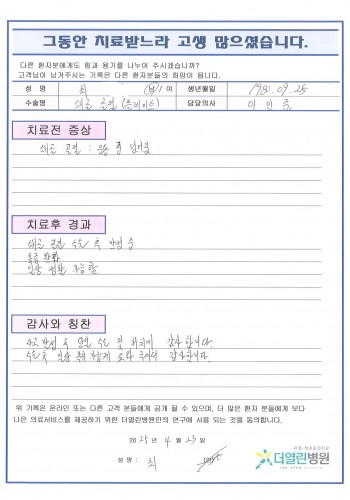 그동안 치료받느라 고생 많으셨습니다.
다른 환자분에게도 힘과 용기를 나누어 주시겠습니까?
고객님이 남겨주시는 기록은 다른 환자분들의 희망이 됩니다.
성 명 최 남 / 여 생년월일 1980. 09. 25
수술명 쇄골 골절 담당의사
치료전 증상
쇄골 골절 : 운동 중 넘어짐
치료후 경과
쇄골 골절 수술 후 안정 중
통증 완화
일상 생활 가능함
감사와 칭찬
사고 발생 후 빠른 수술 및 처치에 감사합니다.
수술 후 일상 복귀 하게 도와 주셔서 감사합니다.
위 기록은 온라인 또는 다른 고객 분들에게 공개 될 수 있으며, 더 많은 환자 분들에게 보다
나은 의료서비스를 제공하기 위한 더열린병원만의 연구에 사용 되는 것을 동의합니다.
2025년 4월 23일
성 명 : 최
더열린병원